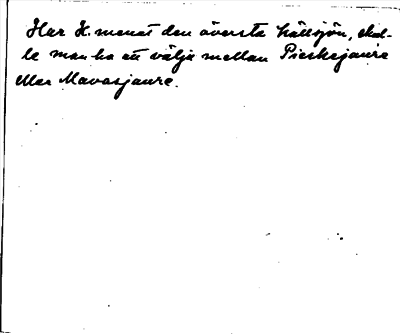 Har H. menat den översta källsjön, skul-
le man ha att välja mellan Pieskejaure
eller Mavasjaure.